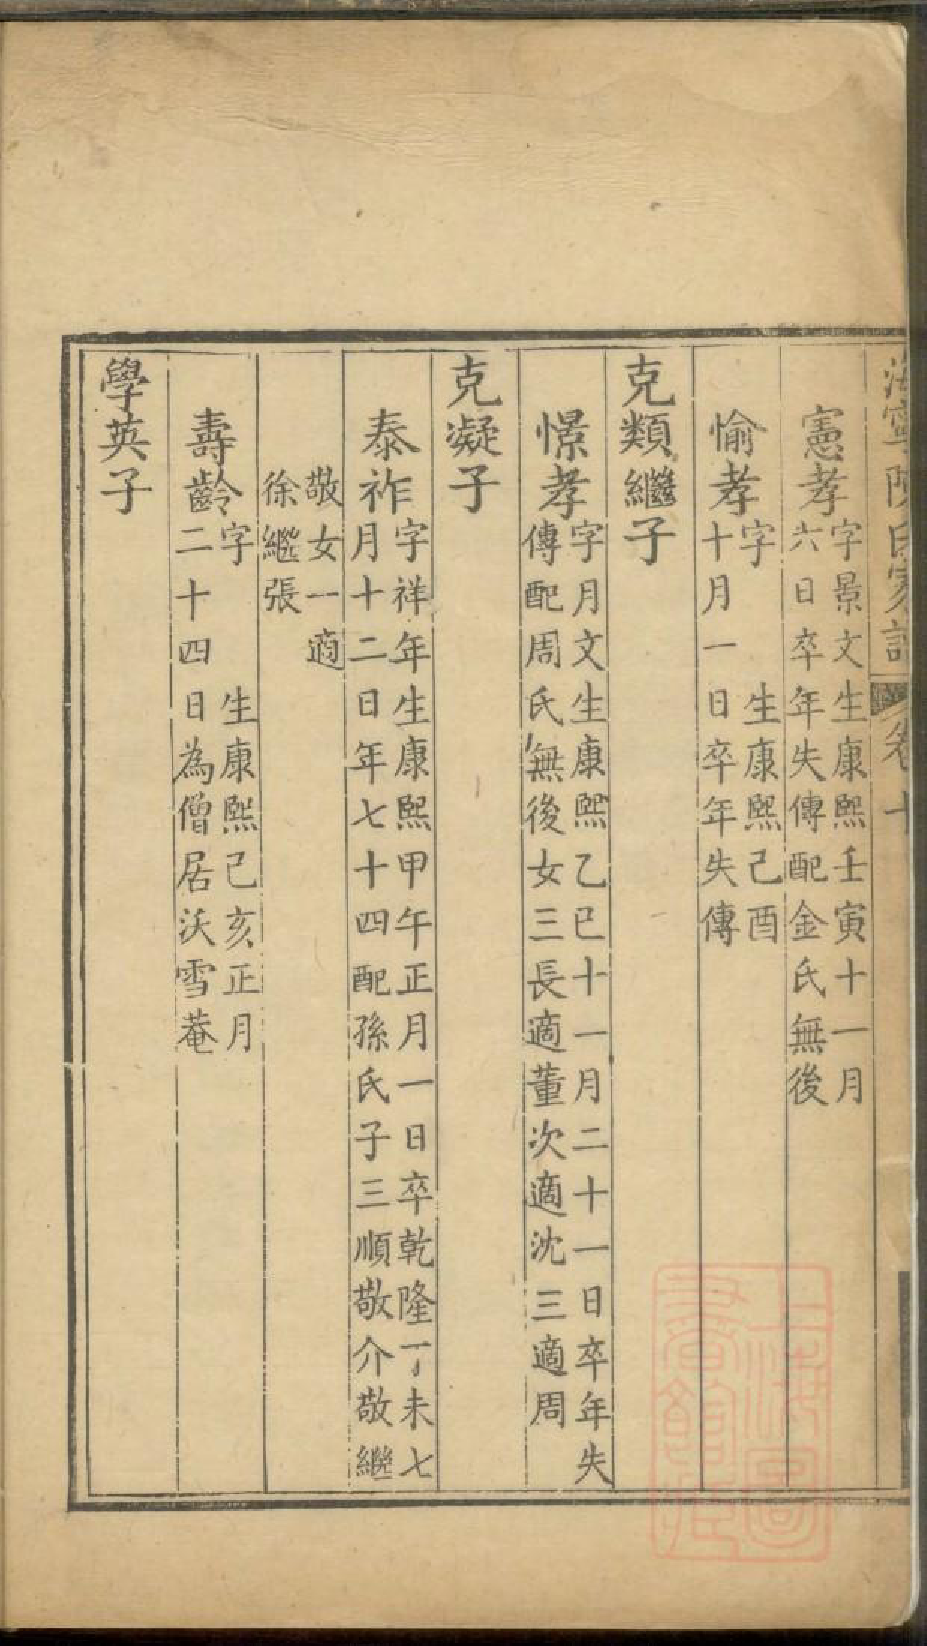 海寧陳氏家譜 卷十
憲孝
字景文生康熙壬寅十一月
六日卒年失傳配金氏無後
愉孝
字 生康熙己酉
十月一日卒年失傳
克類繼子
憬孝
字月文生康熙乙巳十一月二十一日卒年失
傳配周氏無後女三長適董次適沈三適周
克凝子
泰祚
字祥年生康熙甲午正月一日卒乾隆丁未七
月十二日年七十四配孫氏子三順敬介敬繼
敬女一適
徐繼張
壽齡
字 生康熙己亥正月
二十四日為僧居沃雪菴
學英子
上海圖
書館藏